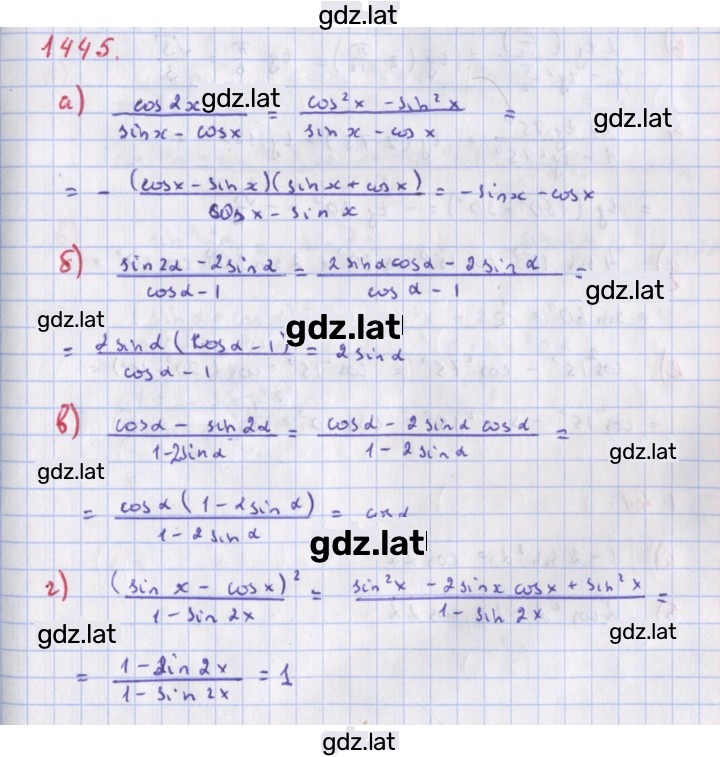 gdz.lat
1445.
а) cos2x / (sinx - cosx) = (cos²x - sin²x) / (sin x - cos x) =
gdz.lat
gdz.lat
= - (cosx - sinx)(sinx + cosx) / (cos x - sin x) = - sinx - cosx
б) (sin2α - 2sinα) / (cosα - 1) = (2sinαcosα - 2sinα) / (cosα - 1) =
gdz.lat
gdz.lat
gdz.lat
= 2sinα(cosα - 1) / (cosα - 1) = 2sinα
в) (cosα - sin2α) / (1-2sinα) = (cosα - 2sinα cosα) / (1 - 2sinα) =
gdz.lat
gdz.lat
= cosα(1 - 2sinα) / (1 - 2sinα) = cosα
gdz.lat
г) (sin x - cosx)² / (1 - sin 2x) = (sin²x - 2sinx cosx + sin²x) / (1 - sin 2x) =
gdz.lat
gdz.lat
= (1 - sin 2x) / (1 - sin 2x) = 1
gdz.lat